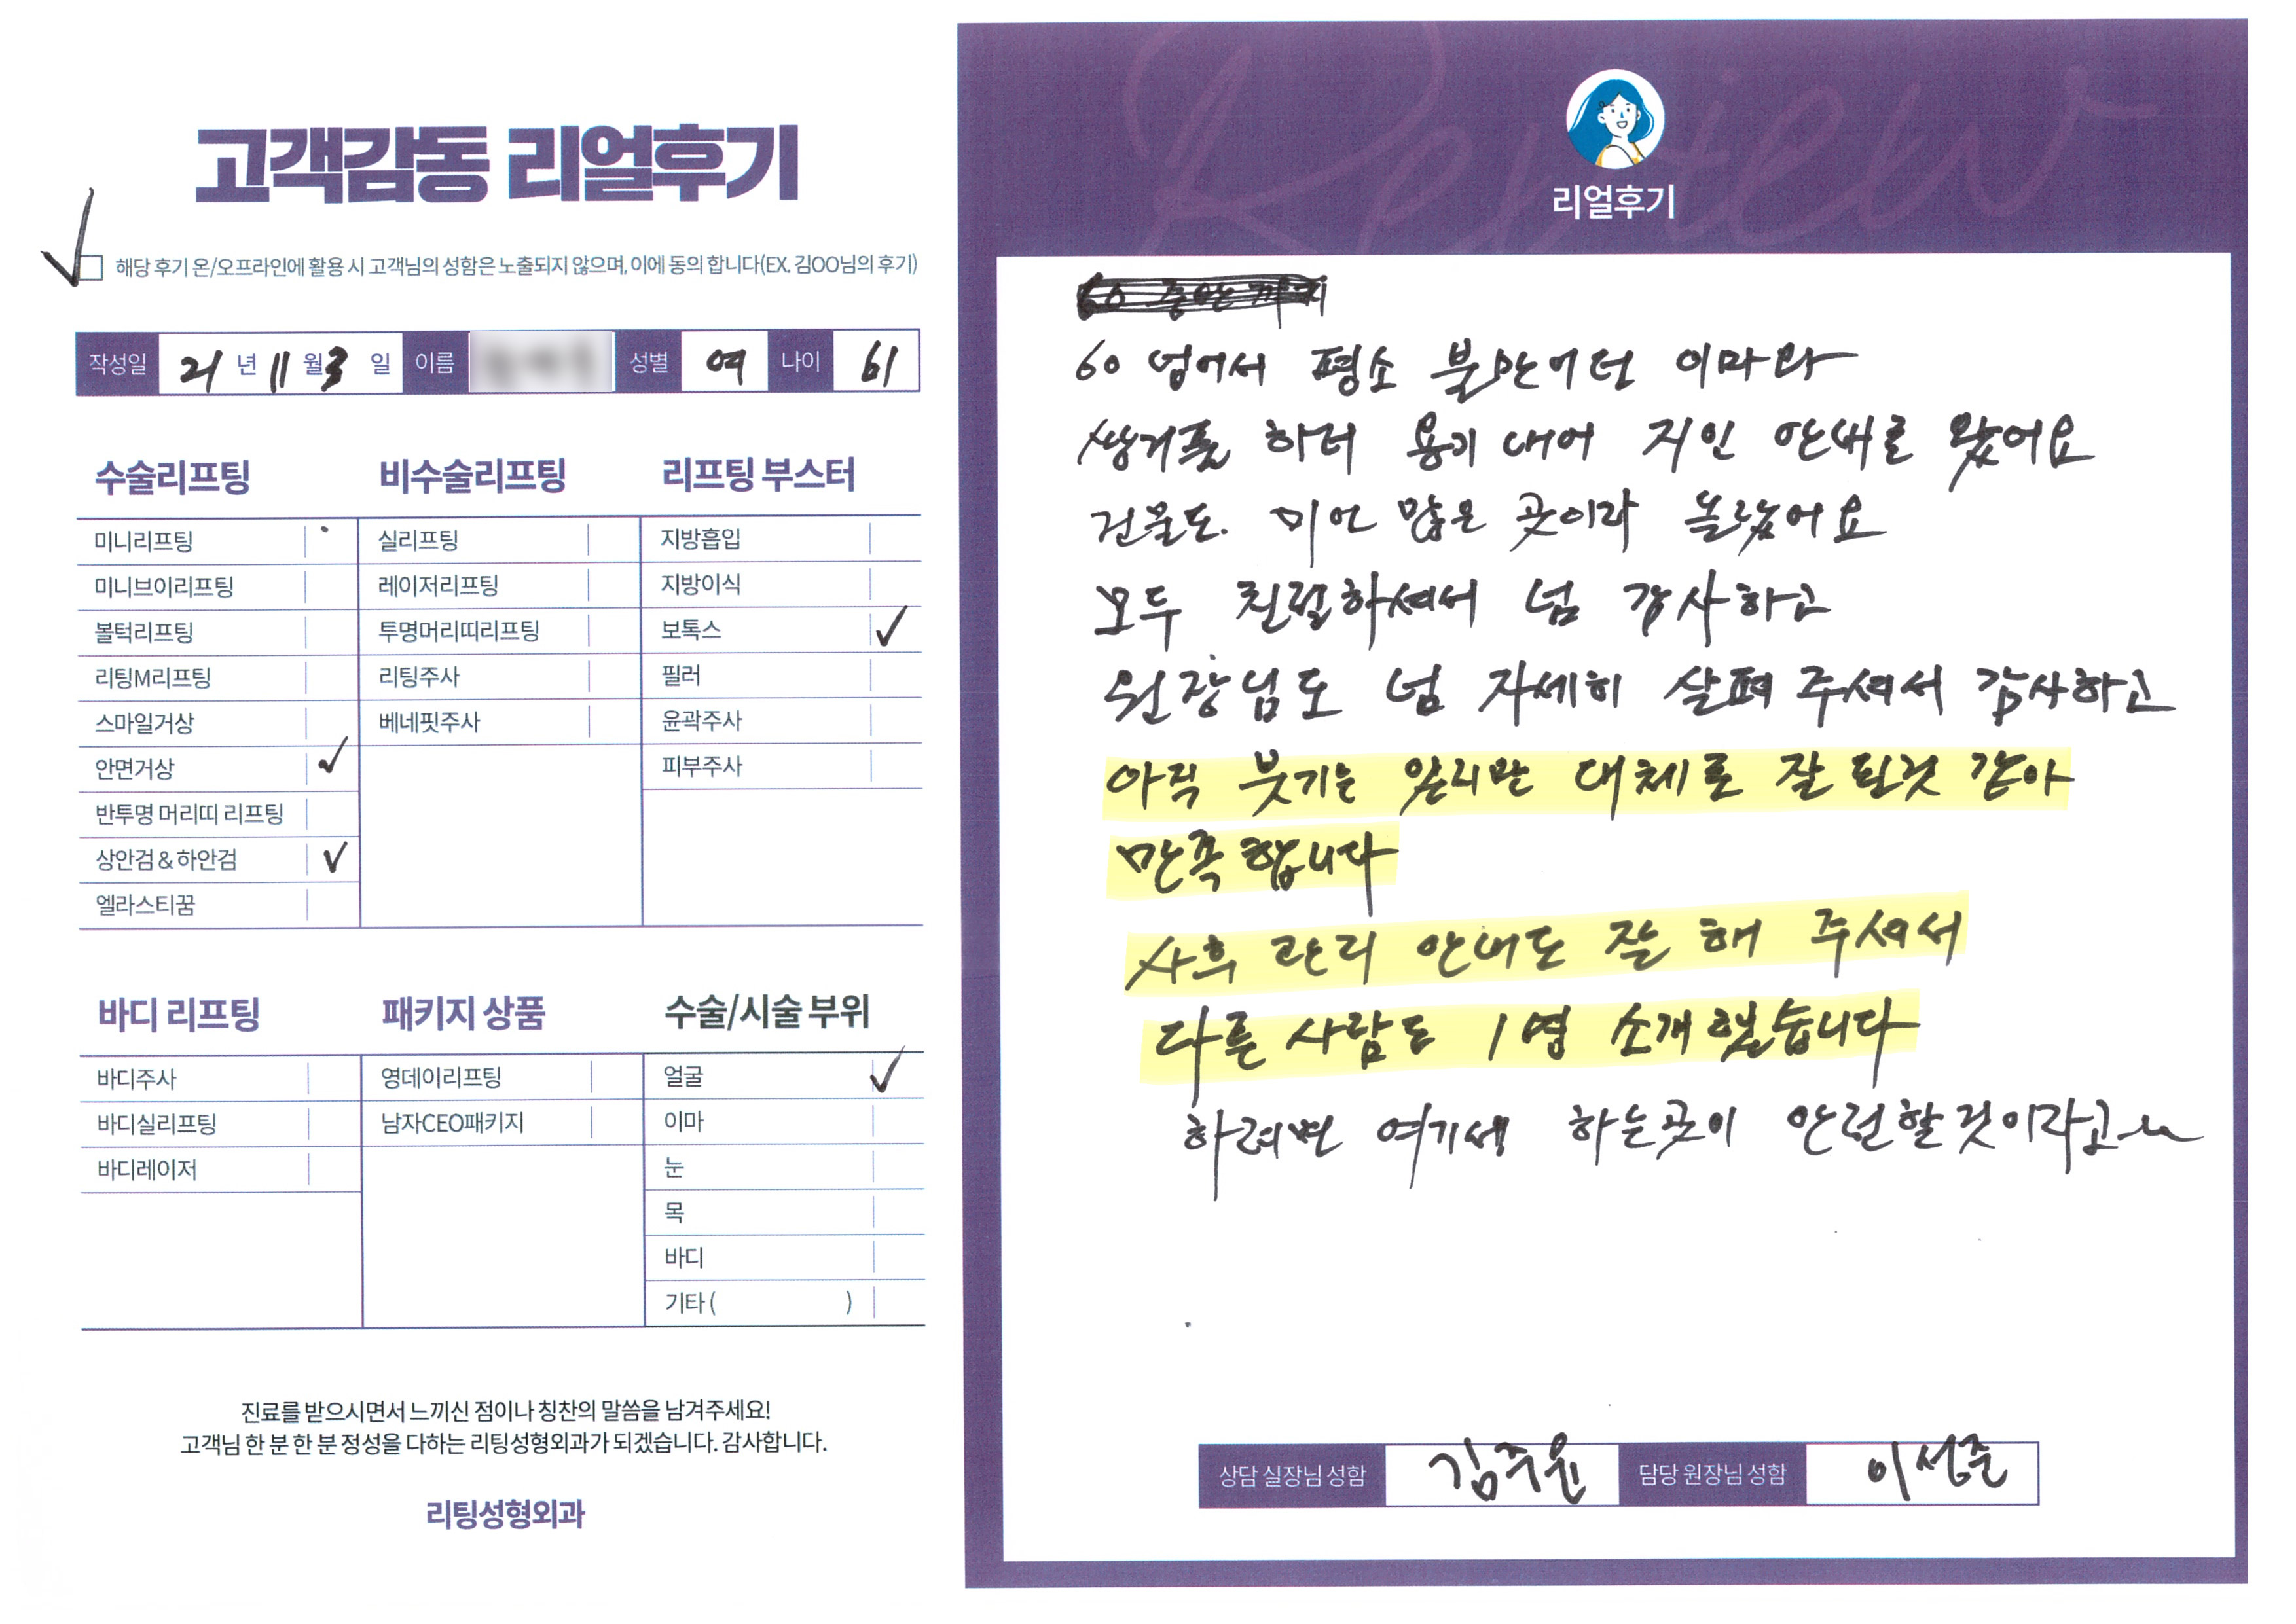 고객감동 리얼후기
해당 후기 온/오프라인에 활용 시 고객님의 성함은 노출되지 않으며, 이에 동의 합니다(EX. 김OO님의 후기)
작성일 21 년 11 월 3 일 이름 성별 여 나이 61
수술리프팅
미니리프팅
미니브이리프팅
볼턱리프팅
리팅M리프팅
스마일거상
안면거상 ✓
반투명 머리띠 리프팅
상안검 & 하안검 ✓
엘라스티꿈
비수술리프팅
실리프팅
레이저리프팅
투명머리띠리프팅
리팅주사
베네핏주사
리프팅 부스터
지방흡입
지방이식
보톡스 ✓
필러
윤곽주사
피부주사
바디 리프팅
바디주사
바디실리프팅
바디레이저
패키지 상품
영데이리프팅
남자CEO패키지
수술/시술 부위
얼굴 ✓
이마
눈
목
바디
기타 ( )
진료를 받으시면서 느끼신 점이나 칭찬의 말씀을 남겨주세요!
고객님 한 분 한 분 정성을 다하는 리팅성형외과가 되겠습니다. 감사합니다.
리팅성형외과
Review
리얼후기
60 넘어서 평소 불만이던 이마과
쌍거풀 하러 용기 내어 지인 안내로 왔어요
건물도. 미언 많은 곳이라 놀랐어요
모두 친절하셔서 넘 감사하고
원장님도 넘 자세히 살펴 주셔서 감사하고
아직 붓기는 있지만 대체로 잘 된것 같아
만족합니다
사후 관리 안내도 잘 해 주셔서
다른 사람도 1명 소개했습니다
하려면 여기서 하는곳이 안전할것이라고~
상담 실장님 성함 김주윤 담당 원장님 성함 이선준